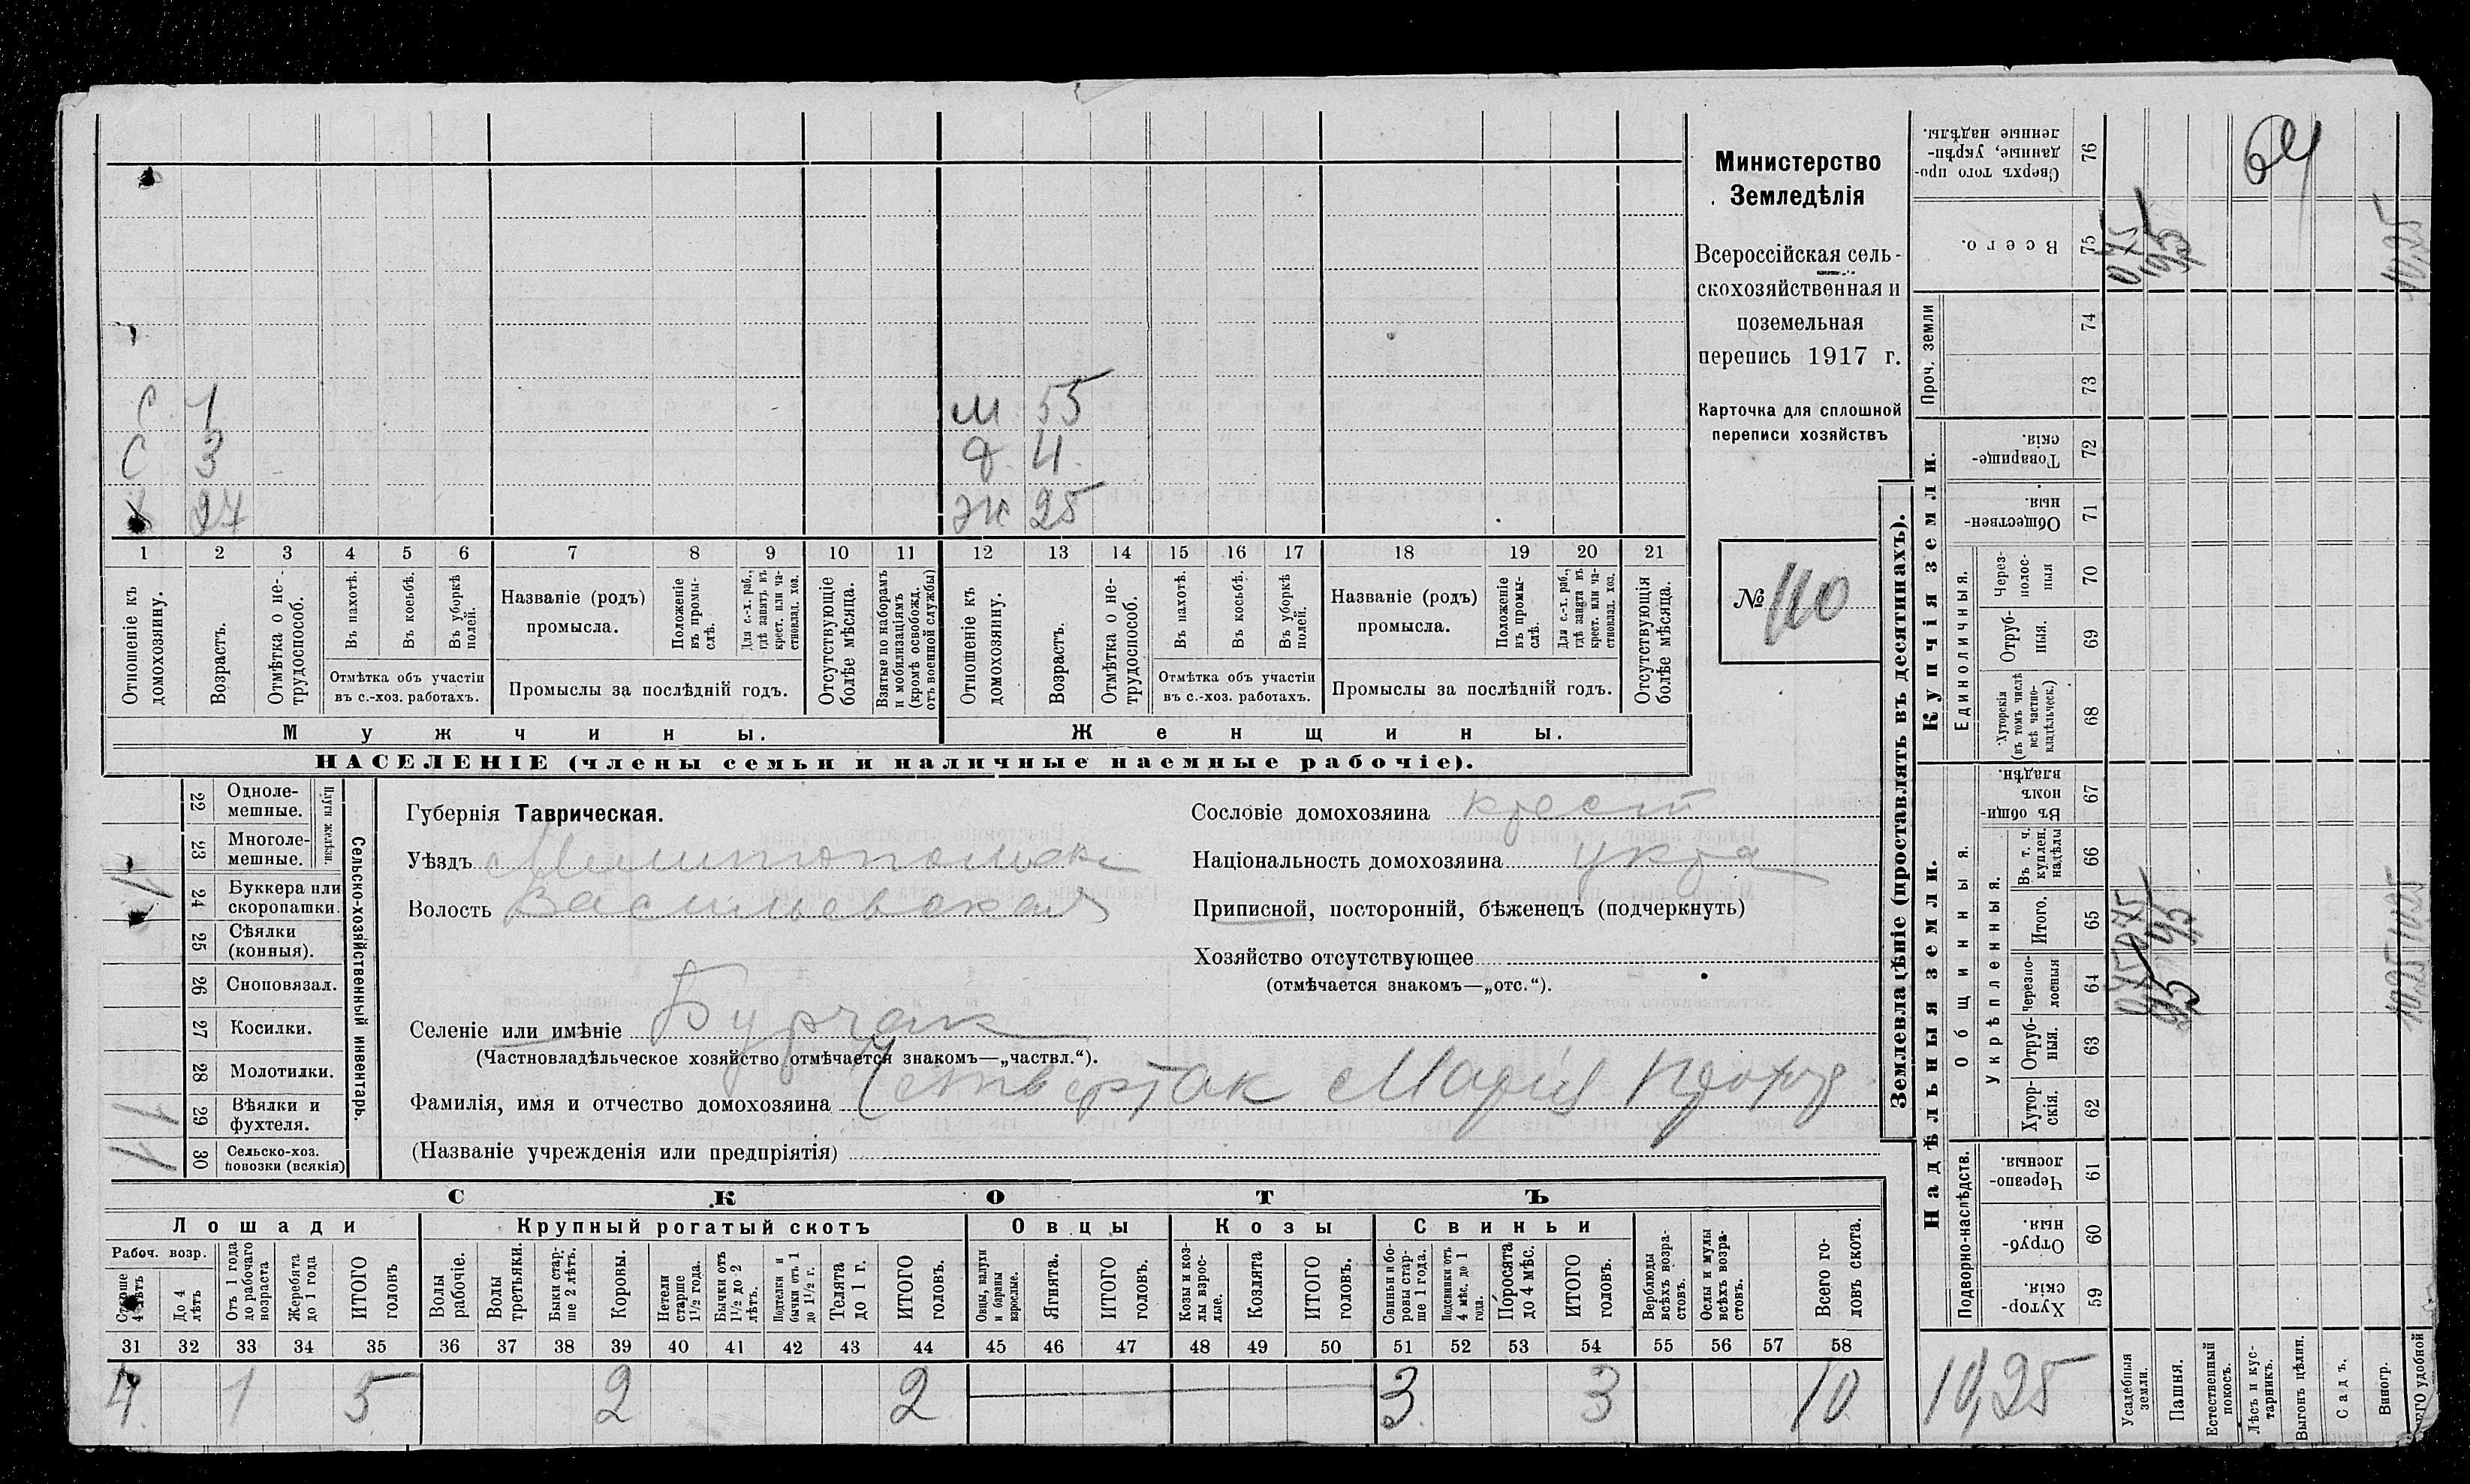 С 1
С 3
Х 27
М 55
д. 4.
Ж 25
1 2 3 4 5 6 7 8 9 10 11 12 13 14 15 16 17 18 19 20 21
Отношеніе къ домохозяину.
Возрастъ.
Отмѣтка о не-трудоспособ.
Въ пахотѣ.
Въ косьбѣ.
Въ уборкѣ полей.
Отмѣтка объ участіи
въ с.-хоз. работахъ.
Названіе (родъ)
промысла.
Положеніе въ промы-слѣ.
Для с.-х. раб., гдѣ занятъ въ крест. или ча-стновлад. хоз.
Промыслы за послѣдній годъ.
Отсутствующіе болѣе мѣсяца.
Взятые по наборамъ и мобилизаціямъ (кромѣ освобожд. отъ военной службы)
Отношеніе къ домохозяину.
Возрастъ.
Отмѣтка о не-трудоспособ.
Въ пахотѣ.
Въ косьбѣ.
Въ уборкѣ полей.
Отмѣтка объ участіи
въ с.-хоз. работахъ.
Названіе (родъ)
промысла.
Положеніе въ промы-слѣ.
Для с.-х. раб., гдѣ занята въ крест. или ча-стновлад. хоз.
Промыслы за послѣдній годъ.
Отсутствующія болѣе мѣсяца.
Мужчины.
Женщины.
НАСЕЛЕНІЕ (члены семьи и наличные наемные рабочіе).
Министерство
Земледѣлія
Всероссійская сель-
скохозяйственная и
поземельная
перепись 1917 г.
Карточка для сплошной
переписи хозяйствъ
№ 110
22 Одноле-мешные.
23 Многоле-мешные.
Плуги желѣзн.
24 Буккера или скоропашки. 1
25 Сѣялки (конныя).
26 Сноповязал.
27 Косилки.
28 Молотилки.
29 Вѣялки и фухтеля. 1
30 Сельско-хоз. повозки (всякія) 1
Сельско-хозяйственный инвентарь.
Губернія Таврическая.
Уѣздъ Мелитопольск
Волость Васильевская
Селеніе или имѣніе Бурчак
(Частновладѣльческое хозяйство отмѣчается знакомъ—„частвл.“).
Фамилія, имя и отчество домохозяина Четвертак Марія
(Названіе учрежденія или предпріятія)
Сословіе домохозяина крест
Національность домохозяина укра
Приписной, посторонній, бѣженецъ (подчеркнуть)
Хозяйство отсутствующее
(отмѣчается знакомъ—„отс.“).
СКОТЪ
Лошади
Крупный рогатый скотъ
Овцы
Козы
Свиньи
Рабоч. возр.
Старше 4 лѣтъ
До 4 лѣтъ
Отъ 1 года до рабочаго возраста
Жеребята до 1 года
ИТОГО головъ
Волы рабочіе.
Волы третьяки.
Быки стар-ше 2 лѣтъ.
Коровы.
Нетели старше 1½ года.
Бычки отъ 1½ до 2 лѣтъ.
Подтелки и бычки отъ 1 до 1½ г.
Телята до 1 г.
ИТОГО головъ.
Овцы, валухи и бараны взрослые.
Ягнята.
ИТОГО головъ.
Козы и коз-лы взрос-лые.
Козлята
ИТОГО головъ.
Свиньи и бо-ровы стар-ше 1 года.
Подсвинки отъ 4 мѣс. до 1 года.
Поросята до 4 мѣс.
ИТОГО головъ.
Верблюды всѣхъ возра-стовъ.
Ослы и мулы всѣхъ возра-стовъ.
Всего го-ловъ скота.
31 32 33 34 35 36 37 38 39 40 41 42 43 44 45 46 47 48 49 50 51 52 53 54 55 56 57 58
4 1 5 2 2 3 3 10
Землевладѣніе (проставлять въ десятинахъ).
64
Сверхъ того про-данные, укрѣп-ленные надѣлы. 76
Всего. 75 0,75 9,5 10,25
Проч. земли
74
73
Купчія земли.
Товарище-скія. 72
Обществен-ныя. 71
Единоличныя.
Через-полос-ныя 70
Отруб-ныя. 69
Хуторскія (въ томъ числѣ всѣ частно-владѣльческ.) 68
Надѣльныя земли.
Общинныя.
Въ общи-номъ владѣн. 67
Укрѣпленныя.
Въ т. ч. куплен. надѣлы 66
Итого. 65 0,75 9,5 10,25
Черезпо-лосныя 64 0,75 9,5 10,25
Отруб-ныя. 63
Хутор-скія. 62
Подворно-наслѣдств.
Черезпо-лосныя. 61
Отруб-ныя. 60
Хутор-скія 59
10,25
Усадебныя земли.
Пашня.
Естественный покосъ.
Лѣсъ и кус-тарникъ.
Выгонъ цѣлин.
Садъ.
Виногр.
удобной